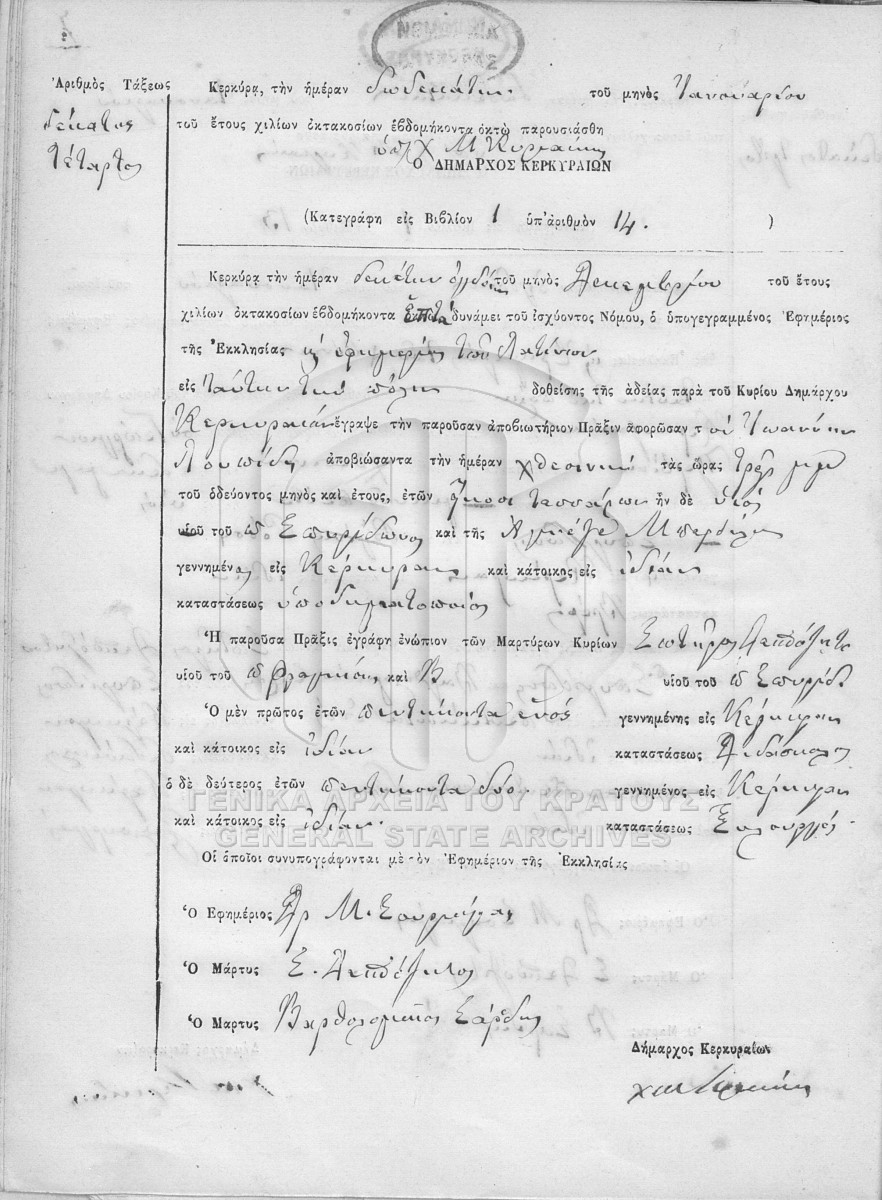 Ἀριθμὸς Τάξεως
δέκατος
τέταρτος
Κερκύρᾳ, τὴν ἡμέραν δωδεκάτην τοῦ μηνὸς Ἰανουαρίου
τοῦ ἔτους χιλίων ὀκτακοσίων ἑβδομήκοντα ὀκτὼ παρουσιάσθη
Ὁ ΔΗΜΑΡΧΟΣ ΚΕΡΚΥΡΑΙΩΝ
(Κατεγράφη εἰς Βιβλίον 1 ὑπ' ἀριθμὸν 14. )
Κερκύρᾳ τὴν ἡμέραν δεκάτην ὀγδόην τοῦ μηνὸς Δεκεμβρίου τοῦ ἔτους
χιλίων ὀκτακοσίων ἑβδομήκοντα ἑπτὰ δυνάμει τοῦ ἰσχύοντος Νόμου, ὁ ὑπογεγραμμένος Ἐφημέριος
τῆς Ἐκκλησίας τῶν Λατίνων
εἰς ταύτην τὴν πόλιν δοθείσης τῆς ἀδείας παρὰ τοῦ Κυρίου Δημάρχου
Κερκυραίων ἔγραψε τὴν παροῦσαν ἀποβιωτήριον Πρᾶξιν ἀφορῶσαν τὸν Ἰωάννην
ἀποβιώσαντα τὴν ἡμέραν χθεσινὴν τὰς ὥρας
τοῦ ὁδεύοντος μηνὸς καὶ ἔτους, ἐτῶν εἴκοσι τεσσάρων ἦν δὲ υἱὸς
υἱοῦ τοῦ π. Σπυρίδωνος καὶ τῆς
γεννημένος εἰς Κέρκυραν καὶ κάτοικος εἰς ἰδίαν
καταστάσεως ὑποδηματοποιός
Ἡ παροῦσα Πρᾶξις ἐγράφη ἐνώπιον τῶν Μαρτύρων Κυρίων
υἱοῦ τοῦ π καὶ Β υἱοῦ τοῦ π Σπυρίδ.
Ὁ μὲν πρῶτος ἐτῶν πεντήκοντα ἑνός γεννημένης εἰς Κέρκυραν
καὶ κάτοικος εἰς ἰδίαν καταστάσεως Διδάσκαλος
ὁ δὲ δεύτερος ἐτῶν πεντήκοντα δύο. γεννημένος εἰς Κέρκυραν
καὶ κάτοικος εἰς ἰδίαν. καταστάσεως Ξυλουργός.
ΓΕΝΙΚΑ ΑΡΧΕΙΑ ΤΟΥ ΚΡΑΤΟΥΣ
GENERAL STATE ARCHIVES
Οἱ ὁποῖοι συνυπογράφονται μὲ τὸν Ἐφημέριον τῆς Ἐκκλησίας
Ὁ Ἐφημέριος
Ὁ Μάρτυς
Ὁ Μαρτυς Βαρθολομαῖος
Δήμαρχος Κερκυραίων